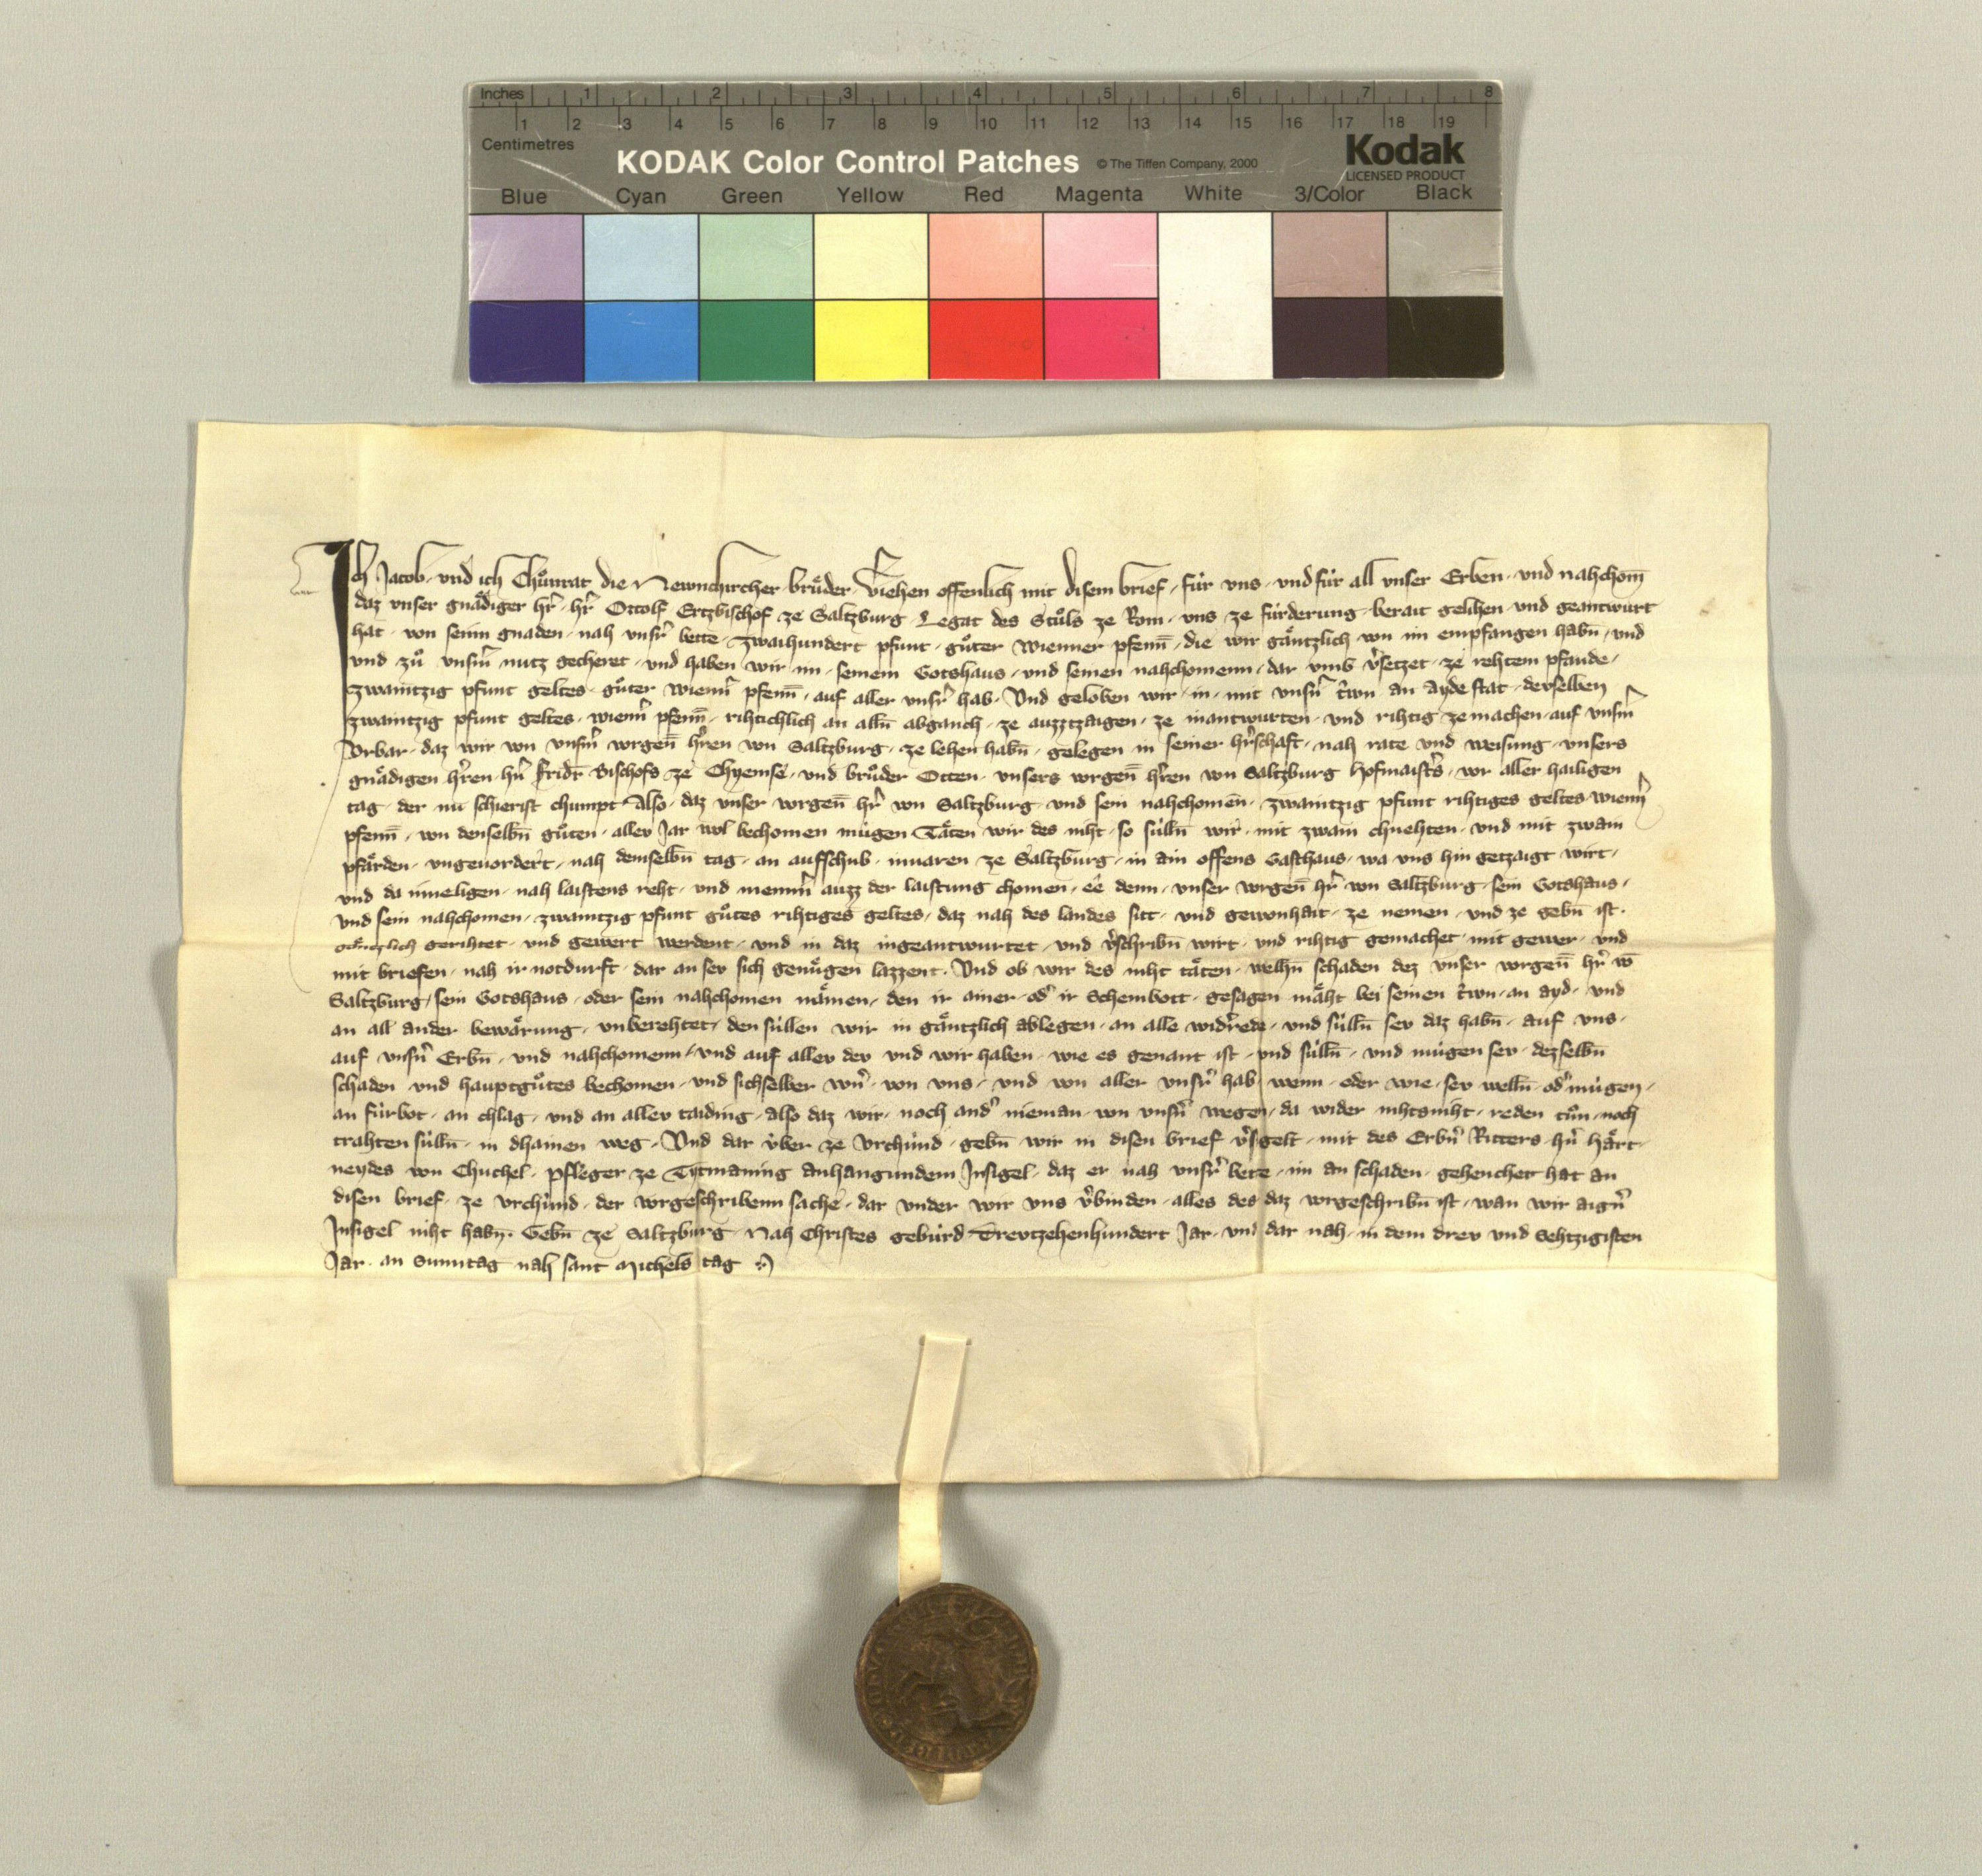 Inches 1 2 3 4 5 6 7 8
1 2 3 4 5 6 7 8 9 10 11 12 13 14 15 16 17 18 19
Centimetres
KODAK Color Control Patches © The Tiffen Company, 2000 Kodak
LICENSED PRODUCT
Blue Cyan Green Yellow Red Magenta White 3/Color Black
Ich Jacob · und ich Chuͦnrat die Newnchircher bruͤder · Veriehen offenlich mit disem brief · fuͤr uns · und fuͤr all unser Erben · und nahchom̅
daz unser gnaͤdiger hr̾ · hr̾ Ortolf Ertzbischof ze Saltzburg · Legat des Stuͦls ze Rom · uns ze fuͤrderung · berait gelihen · und geantwurt
hat · von seinn gnaden · nah unsr̾ bette · zwaihundert pfunt · guͦter wienner pfenn̅ · die wir gaͤntzlich von im empfangen habn̅ · und
und zuͦ unsm̾ nutz gecheret · und haben wir im · seinem Gotshaus · und seinen nahchomenn · dar umb v̾setzet · ze rehtem pfande ·
zwaintzig pfunt geltes · guͦter wienn̾ pfenn̅ · auf aller unsr̾ hab · Und geloben wir · in · mit unsn̾ tr̾wn an ayde stat · derselben
zwaintzig pfunt geltes · wienn̾ pfenn̅ · rihtichlich an alln̅ abganch · ze auzztzaigen · ze inantwurten · und rihtig ze machen · auf unsm̾
Urbar · daz wir von unsm̾ vorgen̅ hr̾ren von Saltzburg · ze lehen habn̅ · gelegen in seiner hr̾schaft · nah rate und weisung · unsers
gnaͤdigen hr̾ren · hn̾ fridr̾ · Bischofs ze Chyemse · und bruͦder Otten · unsers vorgen̅ hr̾ren von Saltzburg hofmaistr̾s · vor aller hailigen
tag · der nu schierist chumpt · Also · daz unser vorgen̅ hr̾ von Saltzburg · und sein nahchomen̅ · zwaintzig pfunt rihtiges geltes · wienn̾
pfenn̅ · von denselbn̅ guͤten · allev Jar wol bechomen muͤgen · Taͤten wir des niht · so suͤlln̅ wir · mit zwain chnehten · und mit zwain
pfaͤrden · ungeuordert · nah demselbn̅ tag · an aufschub · inuaren ze Saltzburg · in ain offens Gasthaus · wa uns hin getzaigt wirt ·
und da inneligen · nah laistens reht · und nimm̾ auzz der laistung chomen · ee denn · unser vorgen̅ hr̾ von Saltzburg · sein Gotshaus ·
und sein nahchomen · zwaintzig pfunt guͦtes rihtiges geltes · daz nah des landes sitt · und gewonhait · ze nemen · und ze gebn̅ ist ·
gaͤntzlich gerihtet · und gewert werdent · und in daz ingeantwurtet · und v̾schribn̅ wirt · und rihtig gemachet · mit gewer · und
mit briefen · nah ir notdurft · dar an sev sich genuͤgen lazzent · Und ob wir des niht taͤten · welhn̅ schaden dez unser vorgen̅ hr̾ vo̅
Saltzburg · sein Gotshaus · oder sein nahchomen naͤmen · den ir ainer · od̾ ir Scheinbott · gesagen maͤht bei seinen tr̾wn · an ayd · und
an all ander bewaͤrung · unberehtet · den suͤllen wir in gaͤntzlich ablegen · an alle widr̾rede · und suͤlln̅ sev daz habn̅ · auf uns ·
auf unsn̾ Erbn̅ · und nahchomenn · und auf allev dev und wir haben · wie es genant ist · und suͤlln̅ · und muͤgen sev · dezselbn̅
schaden · und hauptguͦtes bechomen · und sichselber wern̾ · von uns · und von aller unsr̾ hab · wenn · oder wie · sev welln̅ · od̾ muͤgen ·
an fuͤrbot · an chlag · und an allev taiding · also daz wir · noch and̾ nieman · von unsn̾ wegen · da wider nihtsniht · reden tuͦn · noch
trahten suͤlln̅ · in dhainen weg · Und dar uͤber ze Urchuͤnd · gebn̅ wir in disen brief v̾sigelt · mit des Erbn̾ Ritters · hn̾ haͤrt
neydes von Chuchel · Pfleger ze Tytmaning anhangundem Insigel · daz er nah unsr̾ bete · im an schaden · gehenchet hat an
disen brief · ze urchuͤnd · der vorgeschribenn sache · dar under wir uns v̾binden · alles des daz vorgeschribn̅ ist · wan wir aign̾
Insigel niht habn̅ · Gebn̅ ze Saltzburg · Nah Christes gebuͤrd Drevtzehenhundert Jar · und dar nah · in dem drev und Sehtzigisten
Jar · an Sunntag nah sant Michels tag